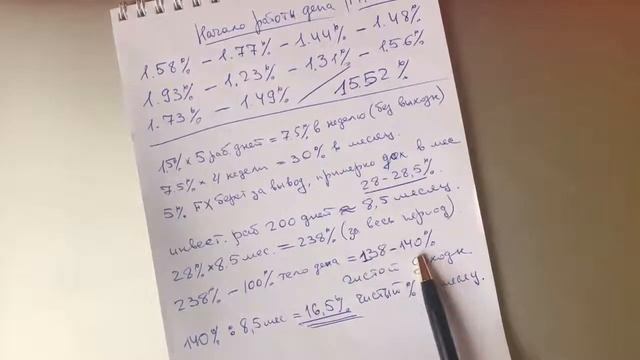 Начало работы депа
1.58% – 1.77% – 1.44% – 1.48%
1.93% – 1.23% – 1.31% – 1.56%
1.73% – 1.49% 15.52%
1,5% x 5 раб. дней = 7.5% в неделю (без выходн)
7.5% x 4 недели = 30% в месяц.
5% FX берет за вывод, примерно дох в мес
28 – 28,5%.
инвест. раб 200 дней ≈ 8,5 месяц.
28% x 8.5 мес. = 238% (за весь период)
238% – 100% тело депа = 138 – 140%
чистой
140% : 8,5 мес = 16,5% чистый %